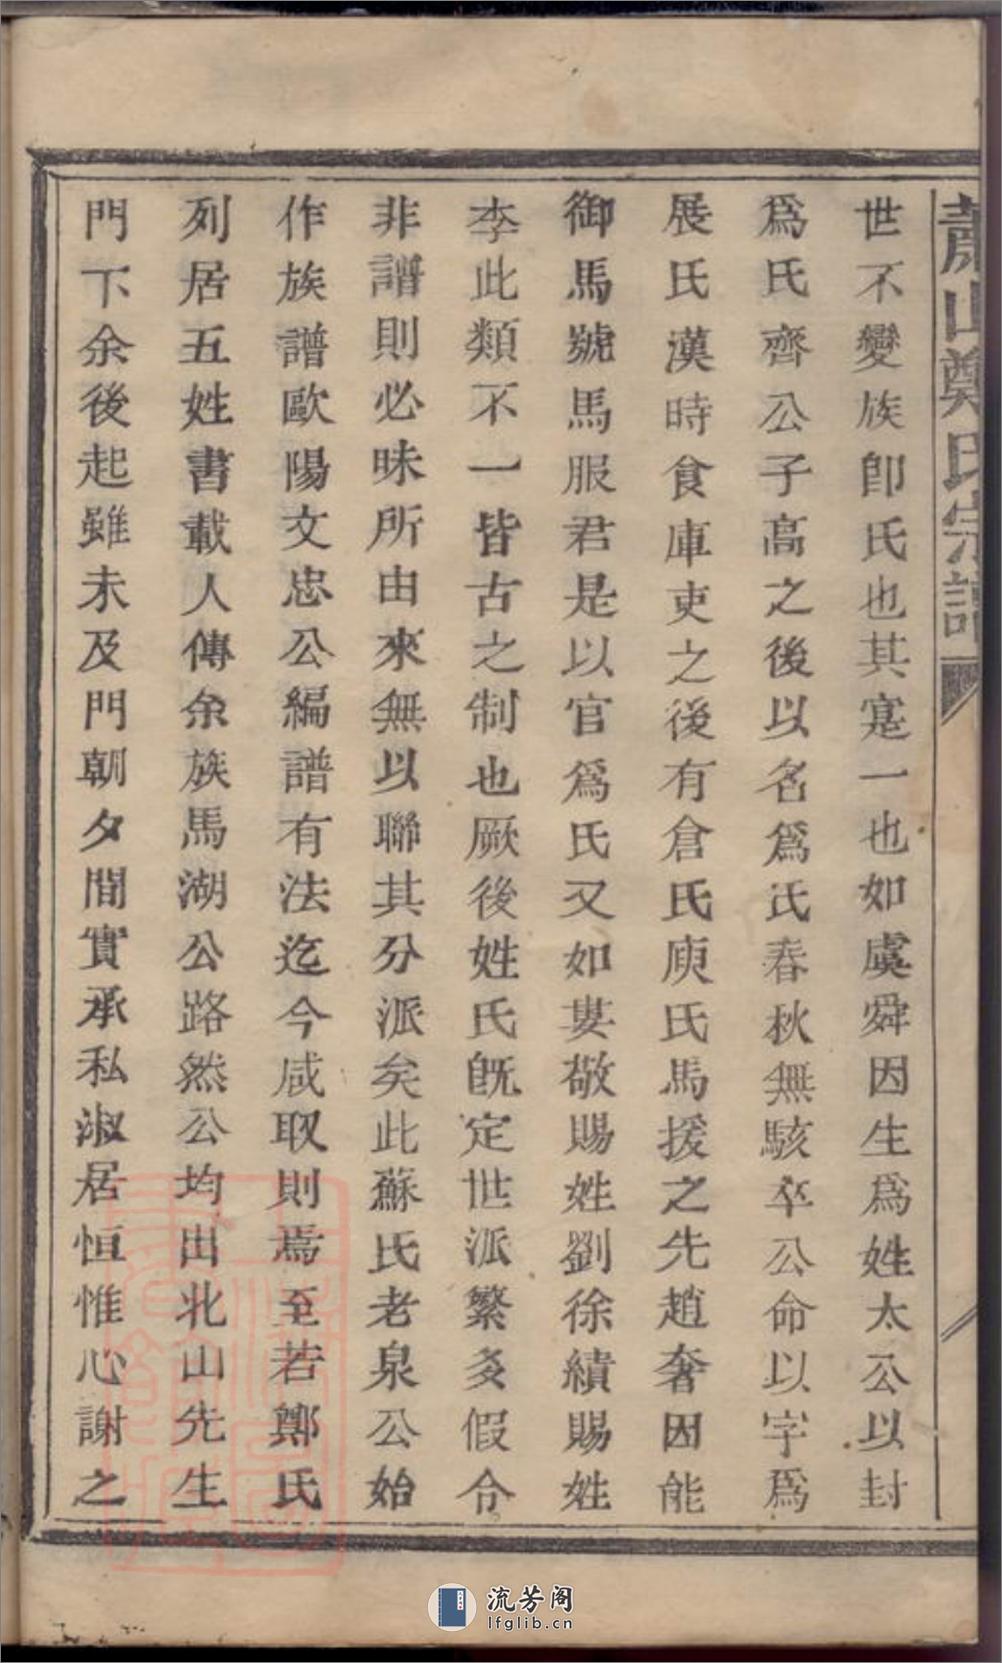 蕭山鄭氏宗譜
世不變族卽氏也其寔一也如虞舜因生爲姓太公以封
爲氏齊公子高之後以名爲氏春秋無駭卒公命以字爲
展氏漢時食庫吏之後有倉氏庾氏馬援之先趙奢因能
御馬號馬服君是以官爲氏又如婁敬賜姓劉徐績賜姓
李此類不一皆古之制也厥後姓氏旣定世派繁多假令
非譜則必昧所由來無以聯其分派矣此蘇氏老泉公始
作族譜歐陽文忠公編譜有法迄今咸取則焉至若鄭氏
列居五姓書載人傳余族馬湖公路然公均出北山先生
門下余後起雖未及門朝夕間實承私淑居恒惟心謝之
流芳阁
lfglib.cn